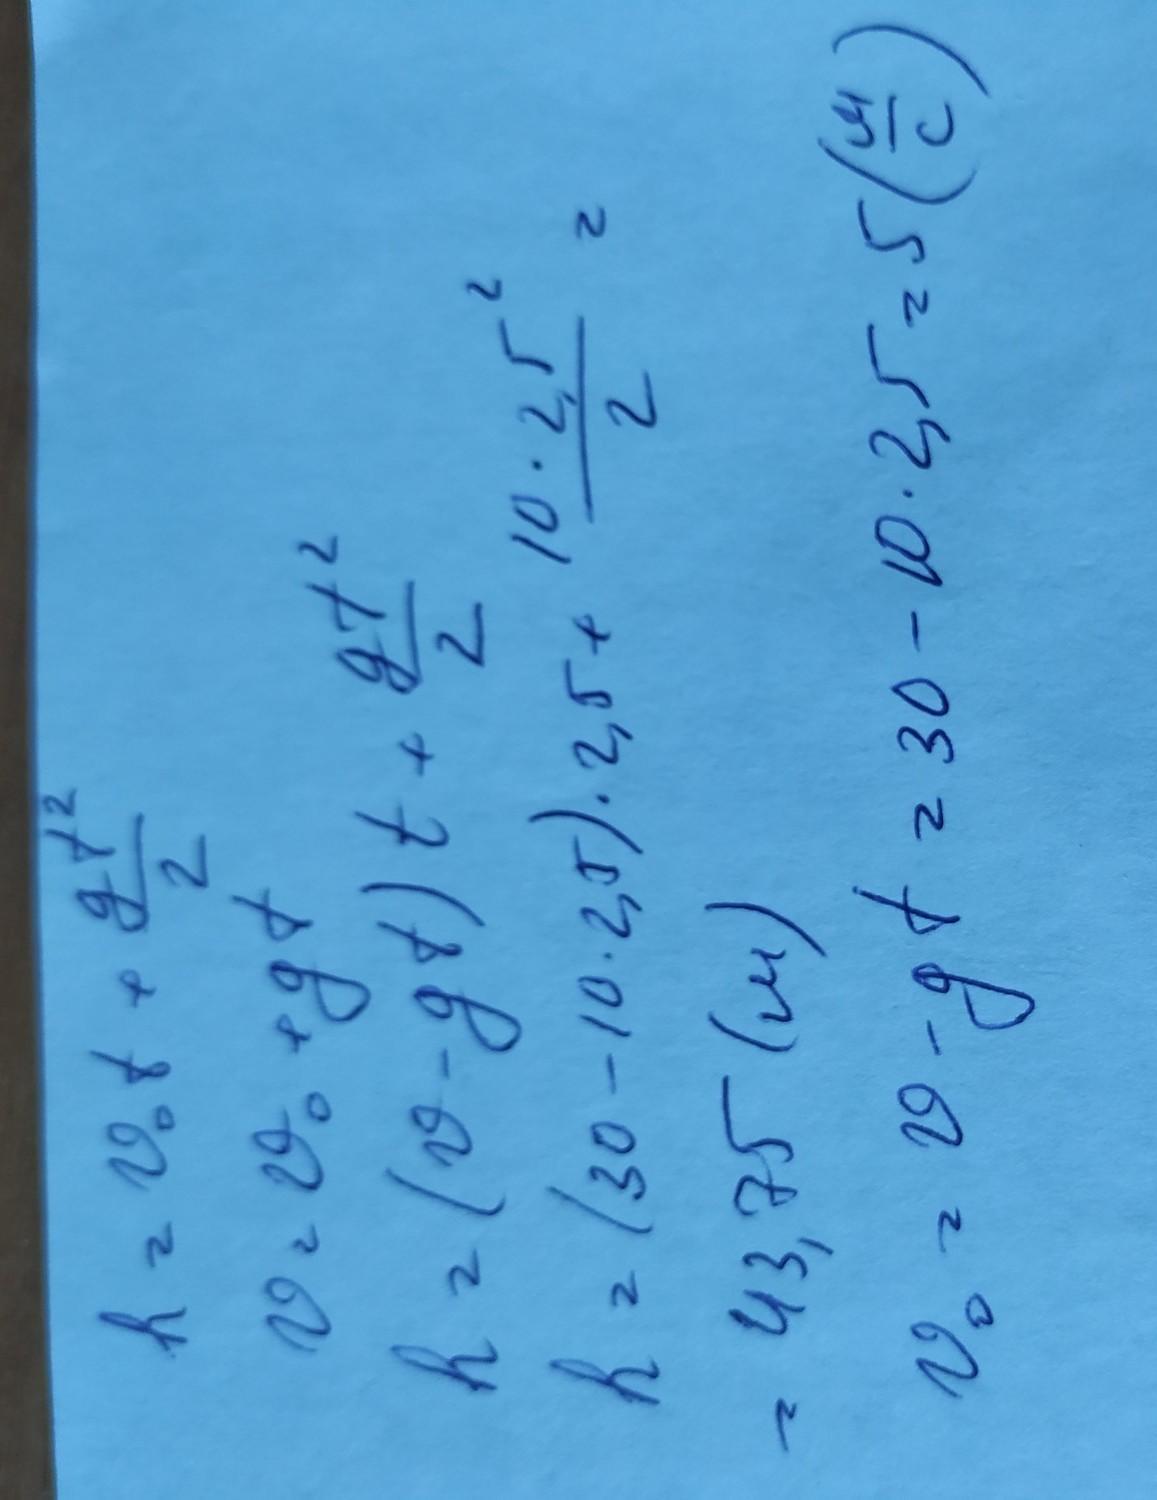 h = v₀t + gt²/2
v = v₀ + gt
h = (v - gt)t + gt²/2
h = (30 - 10 · 2,5) · 2,5 + 10 · 2,5²/2 =
= 43,75 (м)
v₀ = v - gt = 30 - 10 · 2,5 = 5 (м/с)